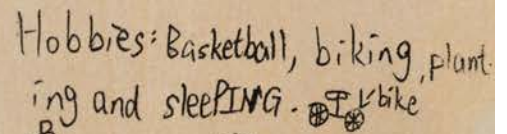 Hobbies: Basketball, biking, plant-
ing and sleePING. bike